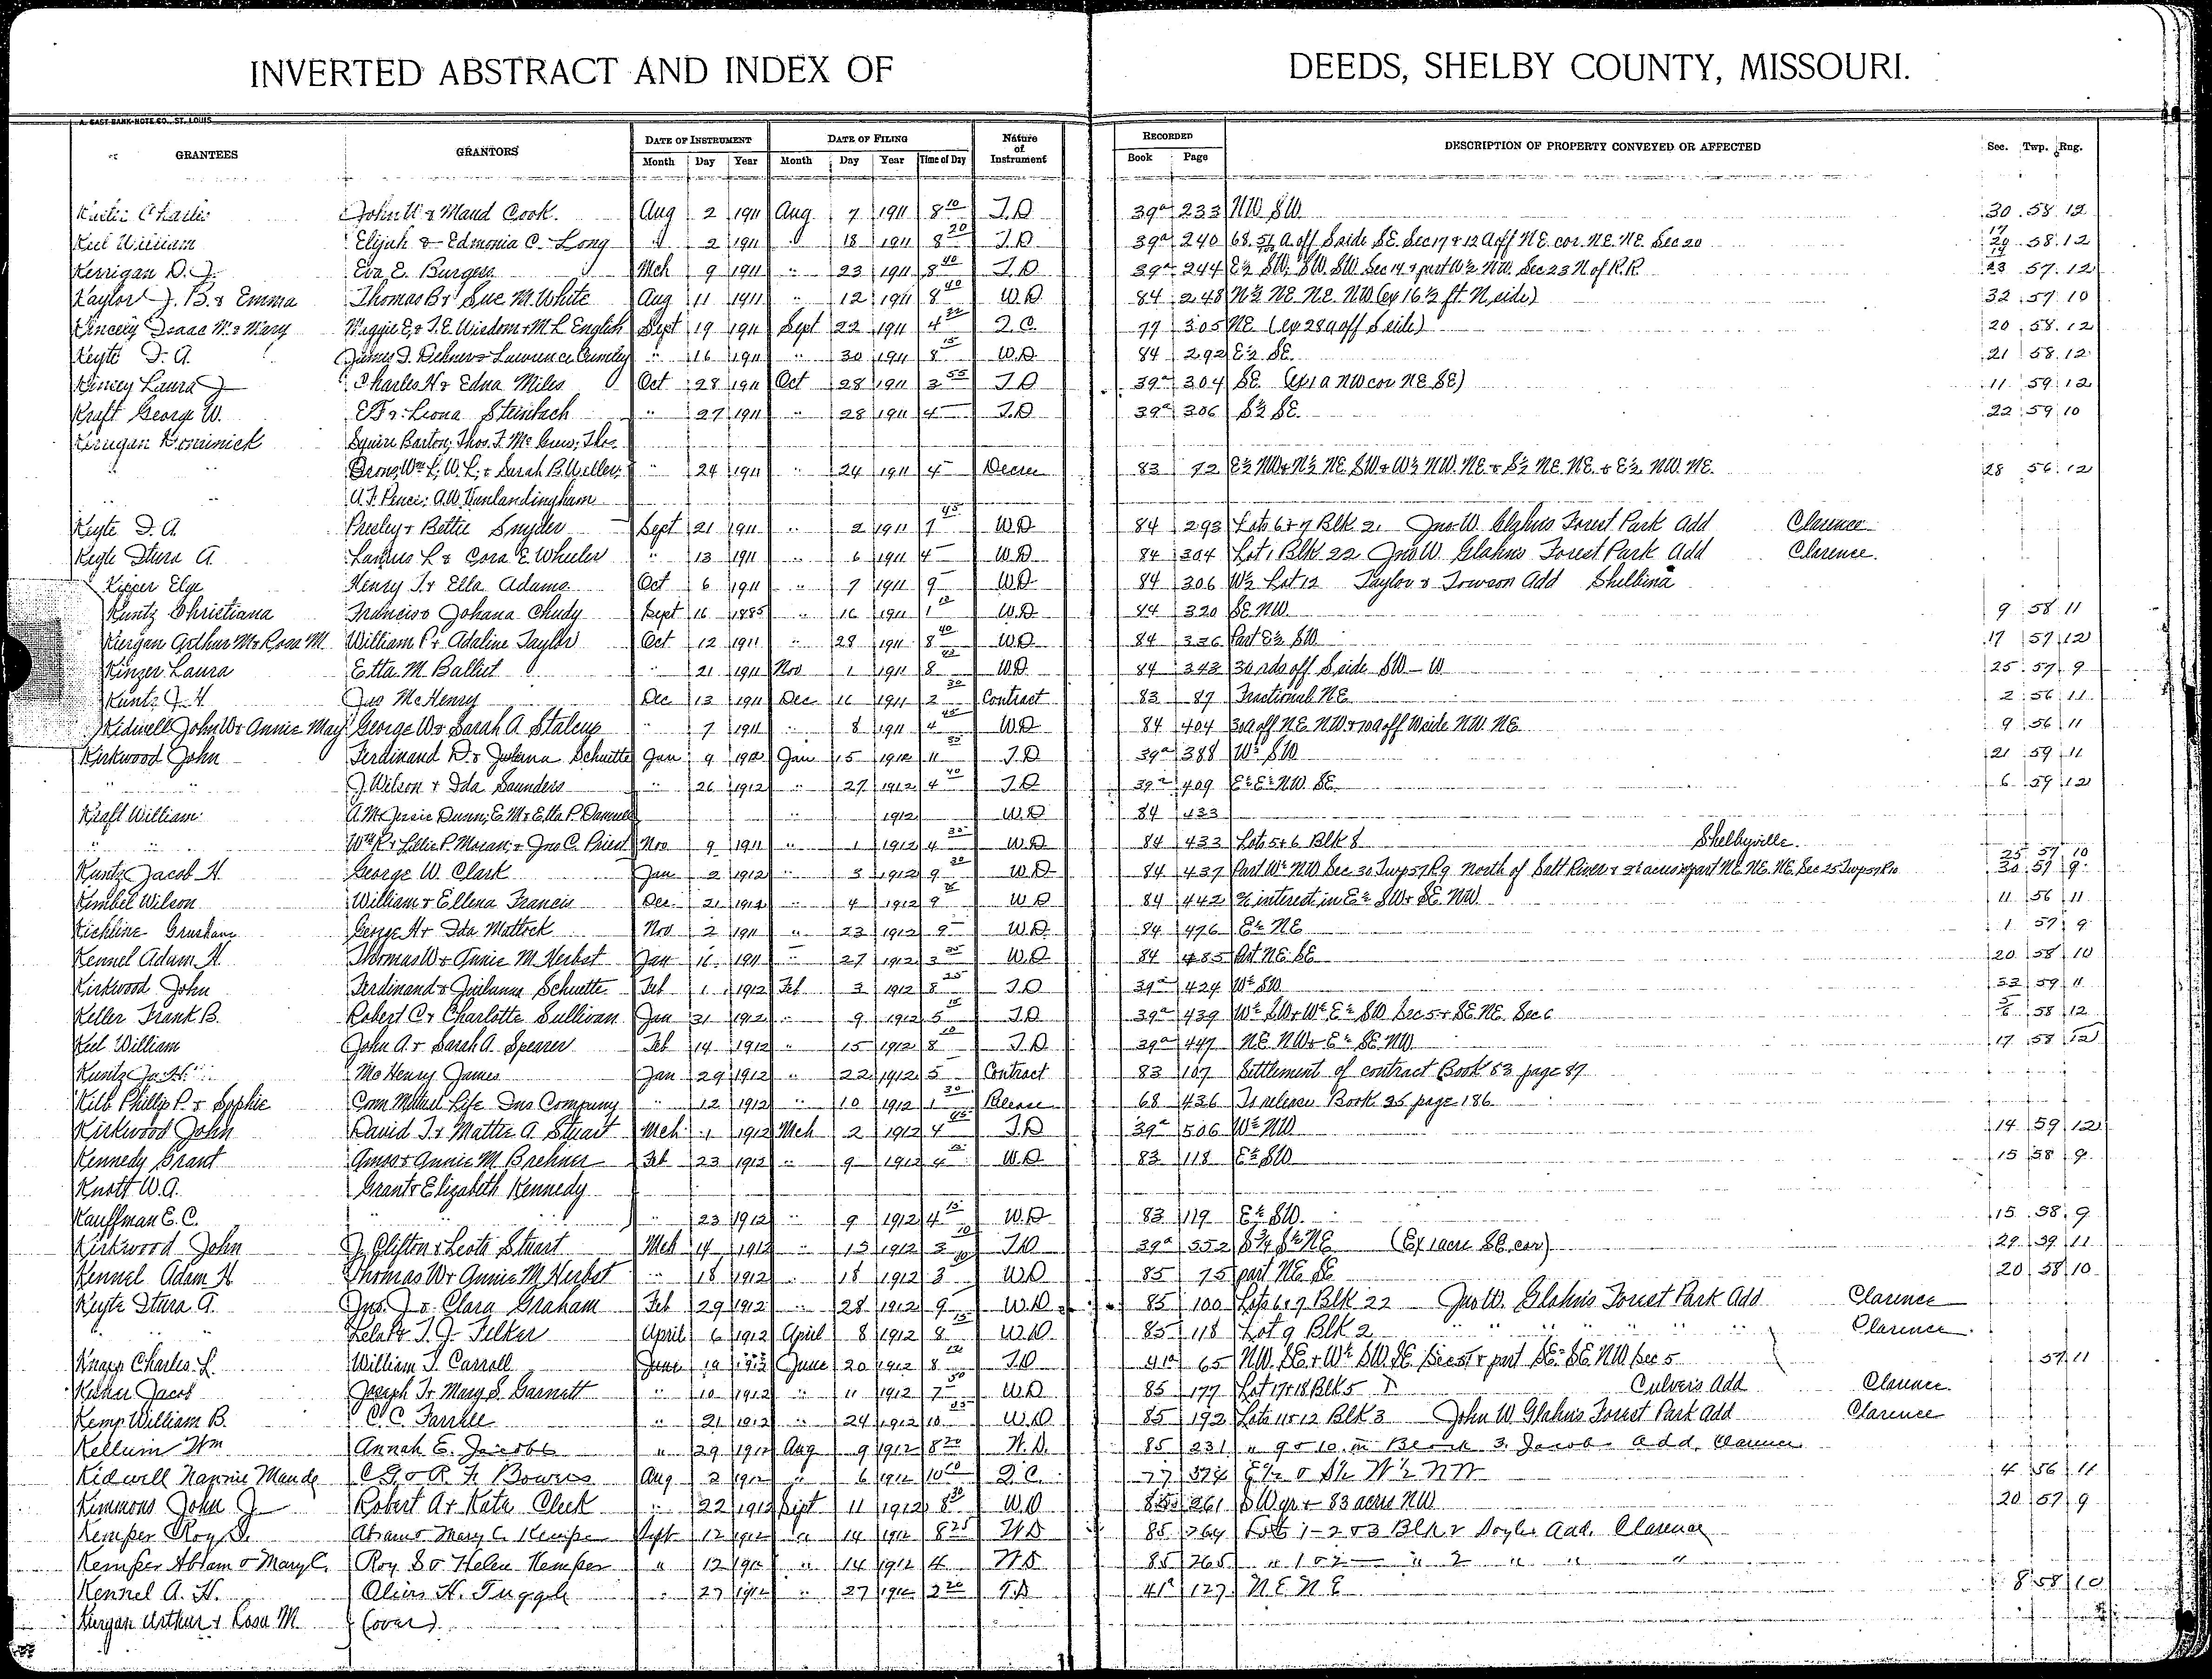 INVERTED ABSTRACT AND INDEX OF DEEDS, SHELBY COUNTY, MISSOURI.
A. GAST BANK-NOTE CO., ST. LOUIS
GRANTEES GRANTORS DATE OF INSTRUMENT DATE OF FILING Nature of Instrument RECORDED DESCRIPTION OF PROPERTY CONVEYED OR AFFECTED Sec. Twp. Rng.
Month Day Year Month Day Year Time of Day Book Page
Charles John W & Maud Cook. Aug 2 1911 Aug 7 1911 8 10 T.D 39a 233 NW SW 30 58 12
Keil William Elijah & Edmonia C. Long " 2 1911 " 18 1911 8 20 T.D. 39a 240 68.51 A off S side SE. Sec 17 & 12 A off N.E. cor. N.E. NE. Sec 20 17 20 58 12
Kerrigan D. J. Eva E. Burgess Mch 9 1911 " 23 1911 8 40 T.D 39a 244 E½ SW, SW. SW Sec 14 & part W½ NW. Sec 23 N of R.R 14 23 57 12
Kaylor J. B. & Emma Thomas B & Sue M. White Aug 11 1911 " 12 1911 8 40 W.D 84 248 N½ NE. NE. NW (ex 16½ ft. N side) 32 57 10
Kinceiy Isaac N. & Mary Maggie E, & T. E. Wisdom & M. L. English Sept 19 1911 Sept 22 1911 4 Q.C. 77 305 NE (ex 28a off S side) 20 58 12
Keyte I. A. James I. & Lawrence " 16 1911 " 30 1911 8 15 W.D. 84 292 E½ SE. 21 58 12
Kincey Laura J Charles H & Edna Miles Oct 28 1911 Oct 28 1911 3 55 T.D 39a 304 SE (ex 1 a NW cor NE SE) 11 59 12
Kraft George W. E. F & Leona Steinbach " 27 1911 " 28 1911 4 T.D 39a 306 S½ SE 22 59 10
Kerrigan Dominick Squire Barton; Thos. F. Mc ; Thos.
" Wm L; W. L; & Sarah B. " 24 1911 " 24 1911 4 Decree 83 72 E½ NW & N½ NE SW & W½ NW. NE. & S½ NE. NE. & E½ NW. NE. 28 56 12
" " A. F. Pence; A. W. Vanlandingham
Keyte I. A. Presley & Bettie Snyder Sept 21 1911 " 2 1911 9 45 W.D 84 293 Lots 6 & 7 Blk 2. Jno W. Glahns Forest Park Add Clarence
Keyte Itura A. L & Cora E. Wheeler " 13 1911 " 6 1911 4 W.D 84 304 Lot 1 Blk 22 Jno W. Glahns Forest Park Add Clarence.
Kipper Elza Henry J & Ella Adams Oct 6 1911 " 7 1911 9 W.D 84 306 W½ Lot 12 Taylor & Towson Add Shelbina
Kuntz Christiana Francis & Johana Chudy Sept 16 1885 " 16 1911 1 W.D 84 320 SE NW 9 58 11
Kurgan Arthur M & Rosa M. William P & Adaline Taylor Oct 12 1911 " 28 1911 8 40 W.D 84 336 Part E½ SW 17 57 12
Kinzer Laura Etta M. Balliet " 21 1911 Nov 1 1911 8 W.D 84 343 30 rds off S side SW - W 25 57 9
Kuntz J. H. Jas McHenry Dec 13 1911 Dec 16 1911 2 30 Contract 83 87 Fractional NE 2 56 11
Kidwell John W & Annie May George W & Sarah A Stalcup " 7 1911 " 8 1911 4 45 W.D 84 404 30a off NE NW & 10a off W side NW. NE 9 56 11
Kirkwood John Ferdinand D. & Juliana Schuette Jan 9 1912 Jan 15 1912 11 55 T.D 39a 388 W½ SW 21 59 11
" " J Wilson & Ida Saunders " 26 1912 " 27 1912 4 40 T.D 39a 409 E½ E½ NW. SE. 6 59 12
Kraft William A. M & Jessie Dunn; E. M & Etta P. Damrell " 1912 W.D 84 433
" " Wm R & Lillie P. Moran; & Jno C. Priest Nov 9 1911 " 1 1912 4 35 W.D 84 433 Lots 5 & 6 Blk 8 Shelbyville.
Kuntz Jacob H. George W. Clark Jan 2 1912 " 3 1912 9 30 W.D 84 437 Part W½ NW Sec 30 Twp 57 R 9 North of Salt River & acres part NE. NE. NE. Sec 25 Twp 57 R 10 25 57 10 30 57 9
Kimbel Wilson William & Ellena Francis Dec. 21 1911 " 4 1912 9 W.D 84 442 interest in E½ SW & SE NW 11 56 11
Kichline Grusham George H & Ida Mattock Nov 2 1911 " 23 1912 9 W.D. 84 476 E½ NE 1 57 9
Kennel Adam H. Thomas W & Annie M. Herbst Jan 16 1911 " 27 1912 3 W.D 84 485 Part NE SE 20 58 10
Kirkwood John Ferdinand & Juilanna Schuette Feb 1 1912 Feb 3 1912 8 25 T.D 39a 424 W½ SW 59 11
Keller Frank B. Robert C & Charlotte Sullivan Jan 31 1912 " 9 1912 5 15 T.D 39a 439 W½ SW & W½ E½ SW Sec 5 & SE NE. Sec 6 5 6 58 12
Keil William John A. & Sarah A. Spencer Feb 14 1912 " 15 1912 8 10 T.D 39a 447 NE. NW & E½ SE. NW 17 58 12
Kuntz J. H. McHenry James Jan 29 1912 " 22 1912 5 Contract 83 107 Settlement of contract Book 83 page 87
Kilb Phillip P. & Sophie Conn Mutual Life Ins Company " 12 1912 " 10 1912 1 30 Release 68 436 Is release Book 35 page 186
Kirkwood John David T. & Mattie A Stuart Mch 1 1912 Mch 2 1912 4 45 T.D 39a 506 W½ NW 14 59 12
Kennedy Grant Amos & Annie M. Brehner Feb 23 1912 " 9 1912 4 W.D 83 118 E½ SW 15 58 9
Knott W. A. Grant & Elizabeth Kennedy
Kauffman E. C. " " 23 1912 " 9 1912 4 15 W.D 83 119 E½ SW. 15 58 9
Kirkwood John J Clifton & Leota Stuart Mch 14 1912 " 15 1912 3 10 T.D 39a 552 S¾ S½ NE (Ex 1 acre SE cor) 29 59 11
Kennel Adam H Thomas W & Annie M Herbst " 18 1912 " 18 1912 3 W.D 85 75 part NE SE 20 58 10
Keyte Itura A. Jno. J. & Clara Graham Feb 29 1912 " 28 1912 9 W.D. 85 100 Lots 6 & 7 Blk 22 Jno W. Glahns Forest Park Add Clarence
" & T. J. Felker April 6 1912 April 8 1912 8 15 W.D. 85 118 Lot 9 Blk 2 " " " " " Clarence.
Knapp Charles L. William T. Carroll June 19 1912 June 20 1912 8 T.D 41a 65 NW. SE & W½ SW. SE & part SE SE NW Sec 5 57 11
Jacob Joseph T & Mary S. Garnett " 10 1912 " 11 1912 7 50 W.D 85 177 Lot 17 & 18 Blk 5 Culvers Add Clarence.
Kemp William B. C. C. Farrell " 21 1912 " 24 1912 10 W.D 85 192 Lots 11 & 12 Blk 3 John W. Glahns Forest Park Add Clarence
Kellum Wm Annah E. Jacobs " 29 1912 Aug 9 1912 8 20 W.D. 85 231 " 9 & 10 in Block 3. Jacobs add, Clarence
Kidwell Nannie Maude C G & R. F. Bowers Aug 2 1912 " 6 1912 10 Q.C. 77 374 E½ & S½ W½ NW 4 56 11
Kimmons John J Robert A & Kate Cleek " 22 1912 Sept 11 1912 8 30 W.D 85 261 SW qr & 83 acres NW 20 57 9
Kemper Roy S. Abram & Mary C. Kemper Sept 12 1912 " 14 1912 8 25 W.D 85 264 Lots 1-2 & 3 Blk 2 Doyles Add. Clarence
Kemper Abram & Mary C. Roy S & Helen Kemper " 12 1912 " 14 1912 4 W.D 85 265 " 1 & 2 " 2 " " "
Kennel A. H. H. Tuggle " 27 1912 " 27 1912 2 20 T.D 41a 127 N E N E 8 58 10
Kurgan Arthur & Rosa M. (over)